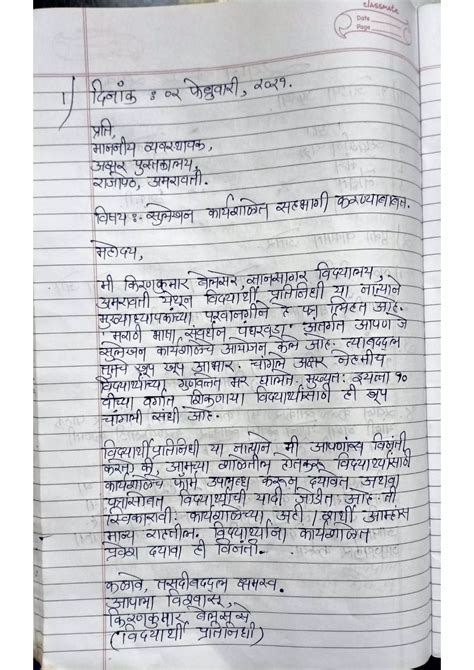 classmate
Date
Page
1) दिनांक : ०२ फेब्रुवारी, २०२१.
प्रति,
माननीय व्यवस्थापक,
अक्षर पुस्तकालय,
राजापेठ, अमरावती.
विषय :- सुलेखन कार्यशाळेत सहभागी करण्याबाबत.
महोदय,
मी किरणकुमार बेलसरे, ज्ञानसागर विद्यालय,
अमरावती येथून विद्यार्थी प्रतिनिधी या नात्याने
मुख्याध्यापकांच्या परवानगीने हे पत्र लिहित आहे.
'मराठी भाषा संवर्धन पंधरवडा' अंतर्गत आपण जे
सुलेखन कार्यशाळेचे आयोजन केले आहे. त्याबद्दल
तुमचे खूप खूप आभार. चांगले अक्षर नेहमीच
विद्यार्थ्यांच्या गुणवत्तेत भर घालते. मुख्यतः इयत्ता १०
वीच्या वर्गात शिकणाऱ्या विद्यार्थ्यांसाठी ही खूप
चांगली संधी आहे.
विद्यार्थी प्रतिनिधी या नात्याने मी आपणांस विनंती
करतो की, आमच्या शाळेतील होतकरू विद्यार्थ्यांसाठी
कार्यशाळेचे फॉर्म उपलब्ध करून दयावेत अथवा
पत्रासोबत विद्यार्थ्यांची यादी जोडत आहे. ती
स्विकारावी. कार्यशाळेच्या अटी / शर्ती आम्हास
मान्य राहतील. विद्यार्थ्यांना कार्यशाळेत
प्रवेश दयावा ही विनंती.
कळावे, तसदीबद्दल क्षमस्व.
आपला विश्वासू,
किरणकुमार बेलसरे
(विद्यार्थी प्रतिनिधी)